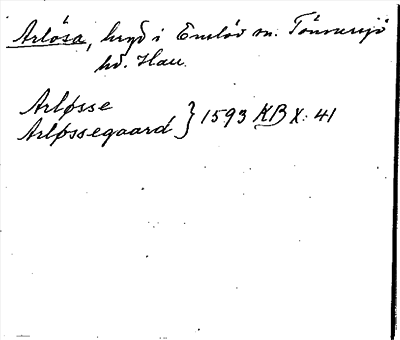 Arlösa, hmd i Enslöv sn. Tönnersjö
hd. Hall.
Arløsse
Arløssegaard } 1593 KB X: 41